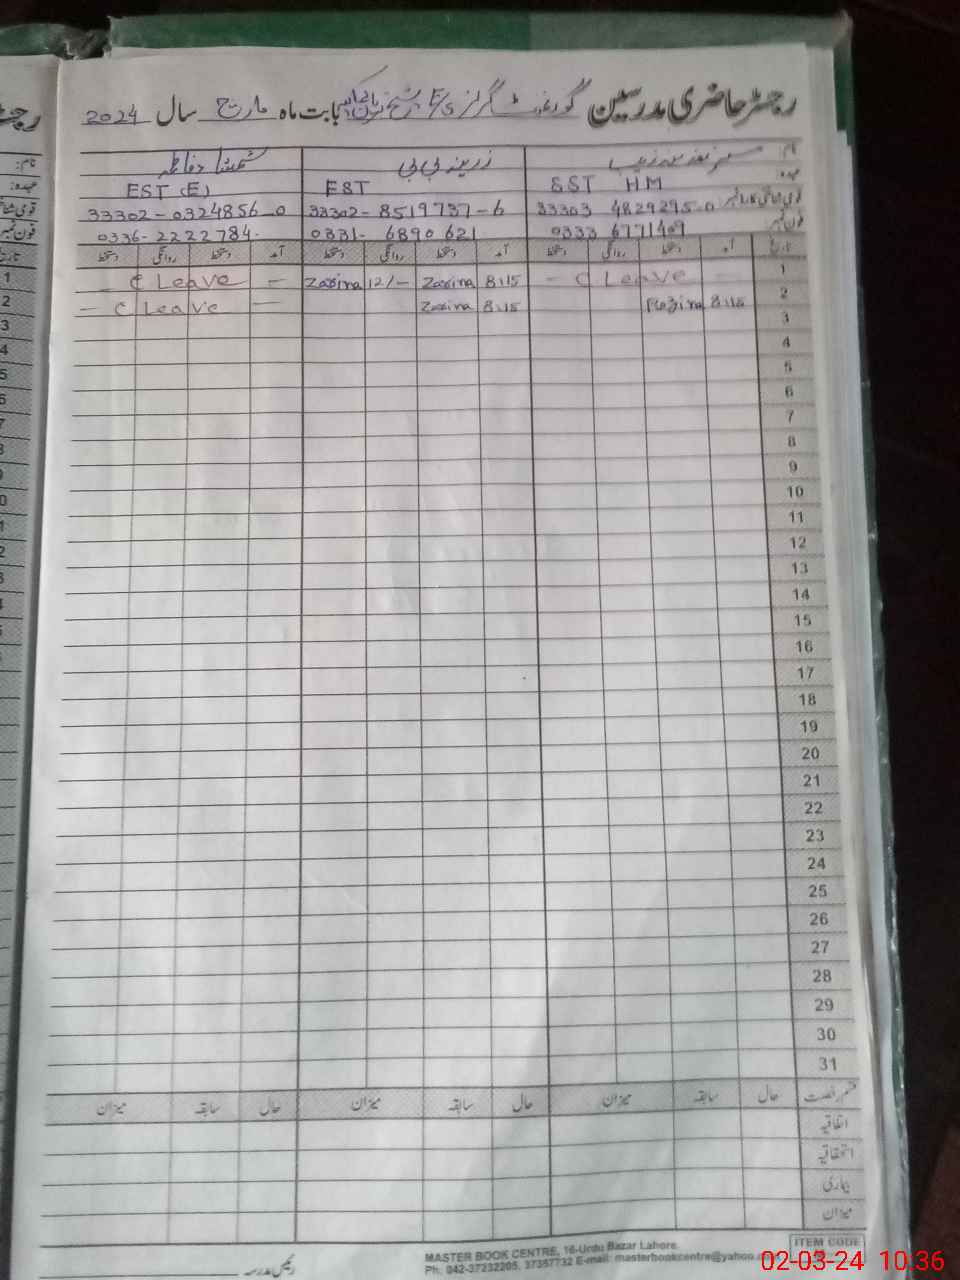 رجسٹر حاضری مدرسین گورنمنٹ گرلز بابت ماہ مارچ سال 2024
نام: زرینہ بی بی
عہدہ: SST HM EST EST (E)
قومی شناختی کارڈ نمبر 33303 4829295-0 33302-8519737-6 33302-0324856-0
فون نمبر 0333 6771409 0331-6890621 0336-2222784
تاریخ آمد دستخط روانگی دستخط آمد دستخط روانگی دستخط آمد دستخط روانگی دستخط
1 — C Leave — 8:15 Zarina 12/- Zarina — C Leave —
2 8:15 8:15 Zarina — C Leave —
3
4
5
6
7
8
9
10
11
12
13
14
15
16
17
18
19
20
21
22
23
24
25
26
27
28
29
30
31
قسم رخصت حال سابقہ میزان حال سابقہ میزان حال سابقہ میزان
اتفاقیہ
استحقاقیہ
بیماری
میزان
رئیس مدرسہ
MASTER BOOK CENTRE, 16-Urdu Bazar Lahore.
Ph. 042-37232205, 37357732 E-mail: masterbookcentre@yahoo.
ITEM CODE
02-03-24 10:36